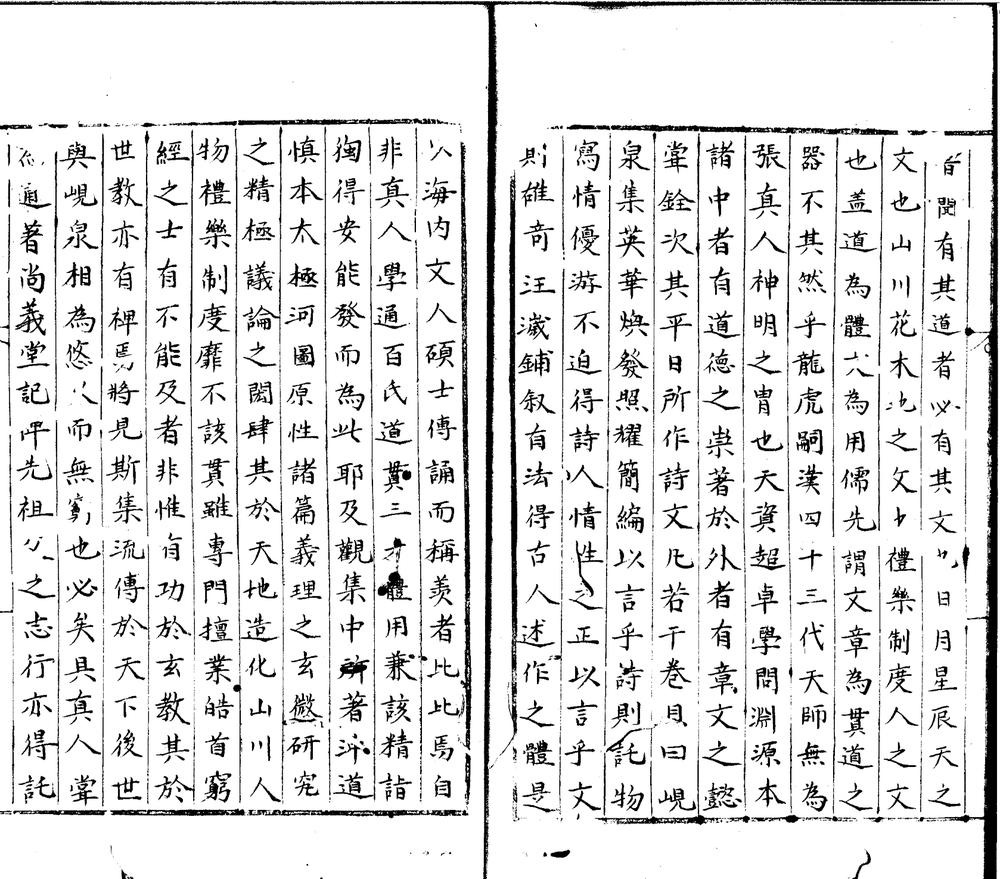 昔聞有其道者必有其文日月星辰天之
文也山川花木地之文也禮樂制度人之文
也盖道為體文為用儒先謂文章為貫道之
器不其然乎龍虎嗣漢四十三代天師無為
張真人神明之胄也天資超卓學問淵源本
諸中者有道德之崇著於外者有章文之懿
甞銓次其平日所作詩文凡若干卷目曰峴
泉集英華煥發照耀簡編以言乎詩則託物
寫情優游不迫得詩人情性之正以言乎文
則雄奇汪濊鋪叙有法得古人述作之體是
以海内文人碩士傳誦而稱羨者比比焉自
非真人學通百氏道貫三才體用兼該精詣
獨得安能發而為此耶及觀集中所著沖道
慎本太極河圖原性諸篇義理之玄微研究
之精極議論之閎肆其於天地造化山川人
物禮樂制度靡不該貫雖專門擅業皓首窮
經之士有不能及者非惟有功於玄教其於
世教亦有裨焉將見斯集流傳於天下後世
與峴泉相為悠久而無窮也必矣具真人甞
通著尚義堂記先祖之志行亦得託